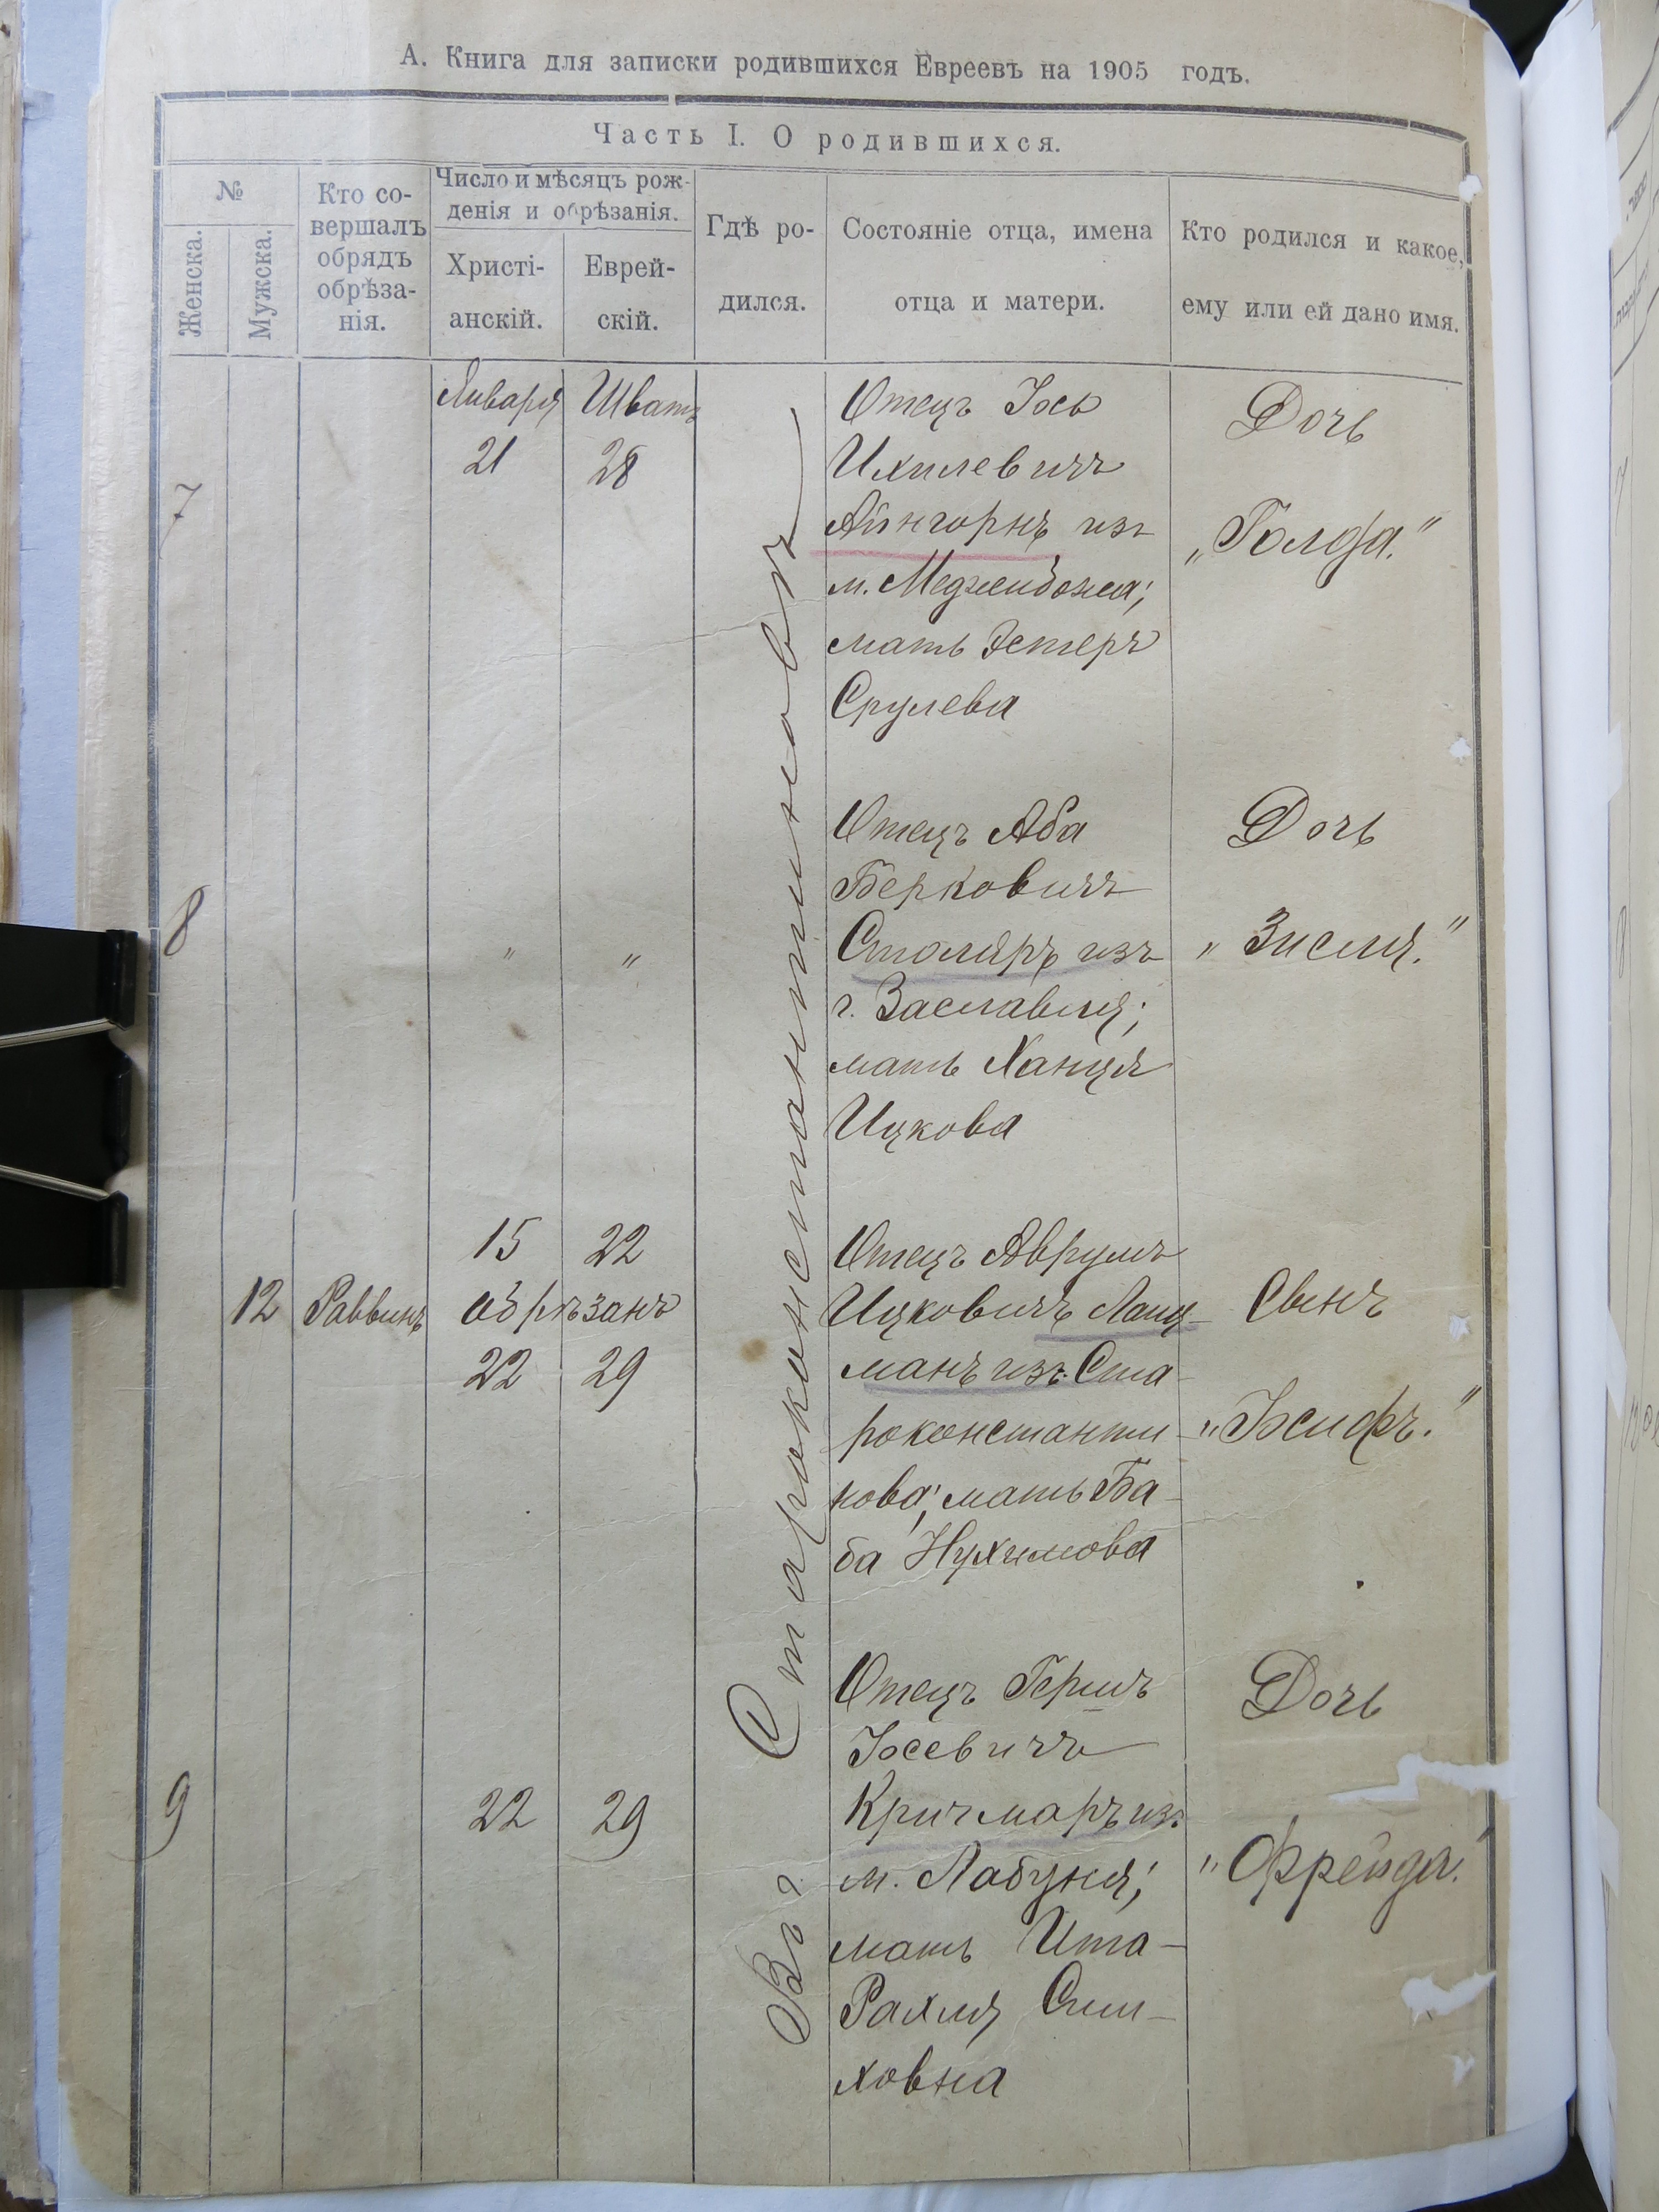 А. Книга для записки родившихся Евреевъ на 1905 годъ.
Часть I. О родившихся.
№
Женска.
Мужска.
Кто со-
вершалъ
обрядъ
обрѣза-
нія.
Число и мѣсяцъ рож-
денія и обрѣзанія.
Христі-
анскій.
Еврей-
скій.
Гдѣ ро-
дился.
Состояніе отца, имена
отца и матери.
Кто родился и какое,
ему или ей дано имя.
Въ г. Староконстантиновѣ
7
Января Шватъ
21 28
Отецъ Іось
Ихилевичъ
Айнгорнъ изъ
м. Меджибожа;
мать Эстеръ
Срулева
Дочь
„Голда."
8
" "
Отецъ Аба
Берковичъ
Столяръ изъ
г. Заславля;
мать Ханця
Ицкова
Дочь
„Зисля."
12 Раввинъ
15 22
обрѣзанъ
22 29
Отецъ Аврумъ
Ицковичъ Ланц-
манъ изъ Ста-
роконстанти-
нова; мать Ба-
ба Нухимова
Сынъ
„Іосифъ."
9
22 29
Отецъ Гершъ
Іосевичъ
Кричмаръ изъ
м. Лабуня;
мать Ита-
Рахля Сим-
ховна
Дочь
„Фрейда."